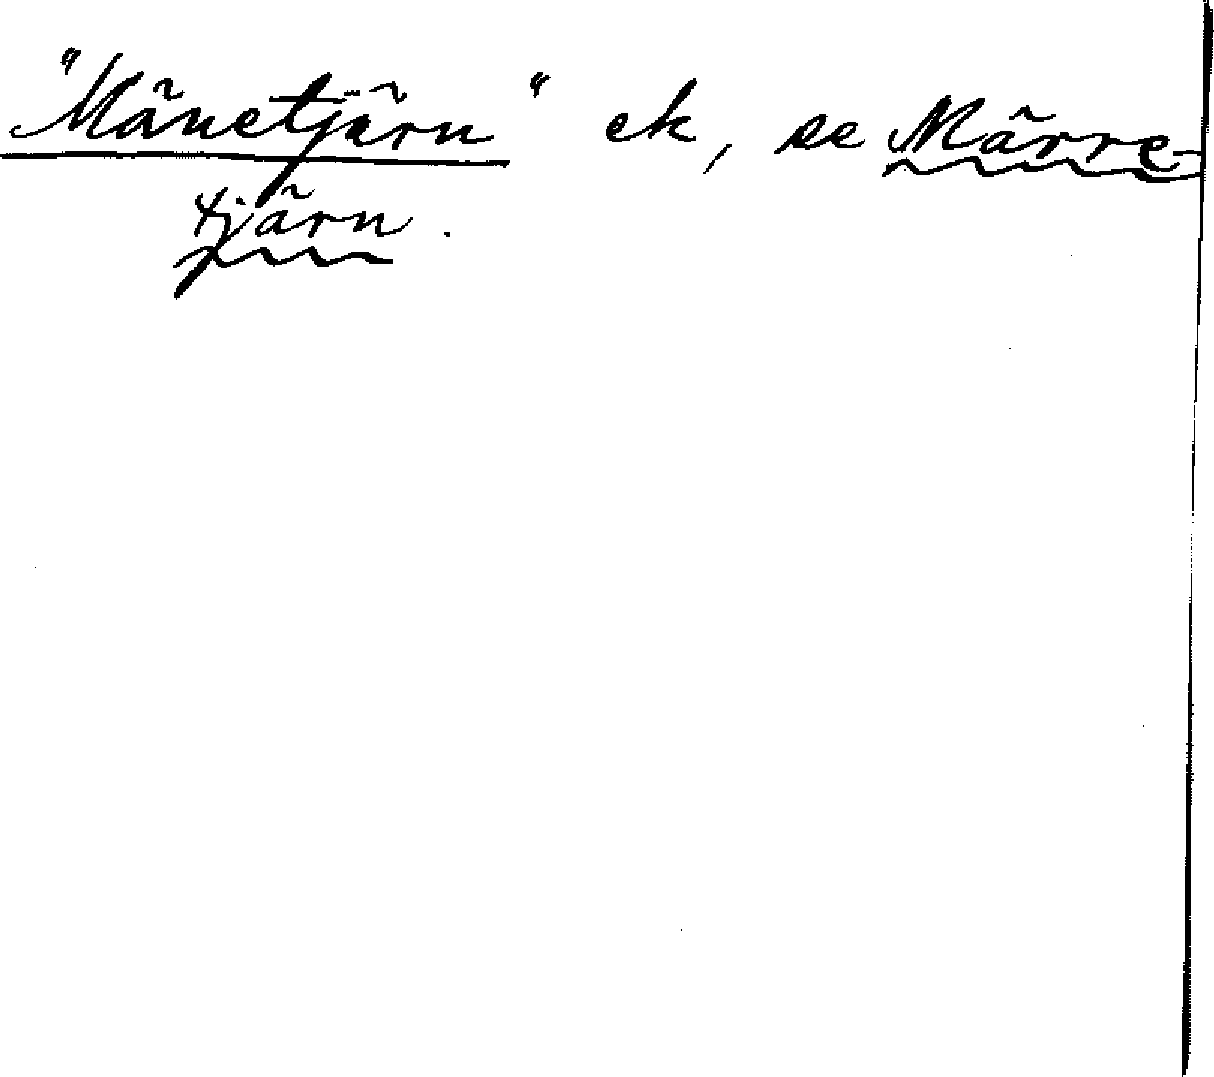 "Mänetjärn" ek, se Märre-
tjärn.